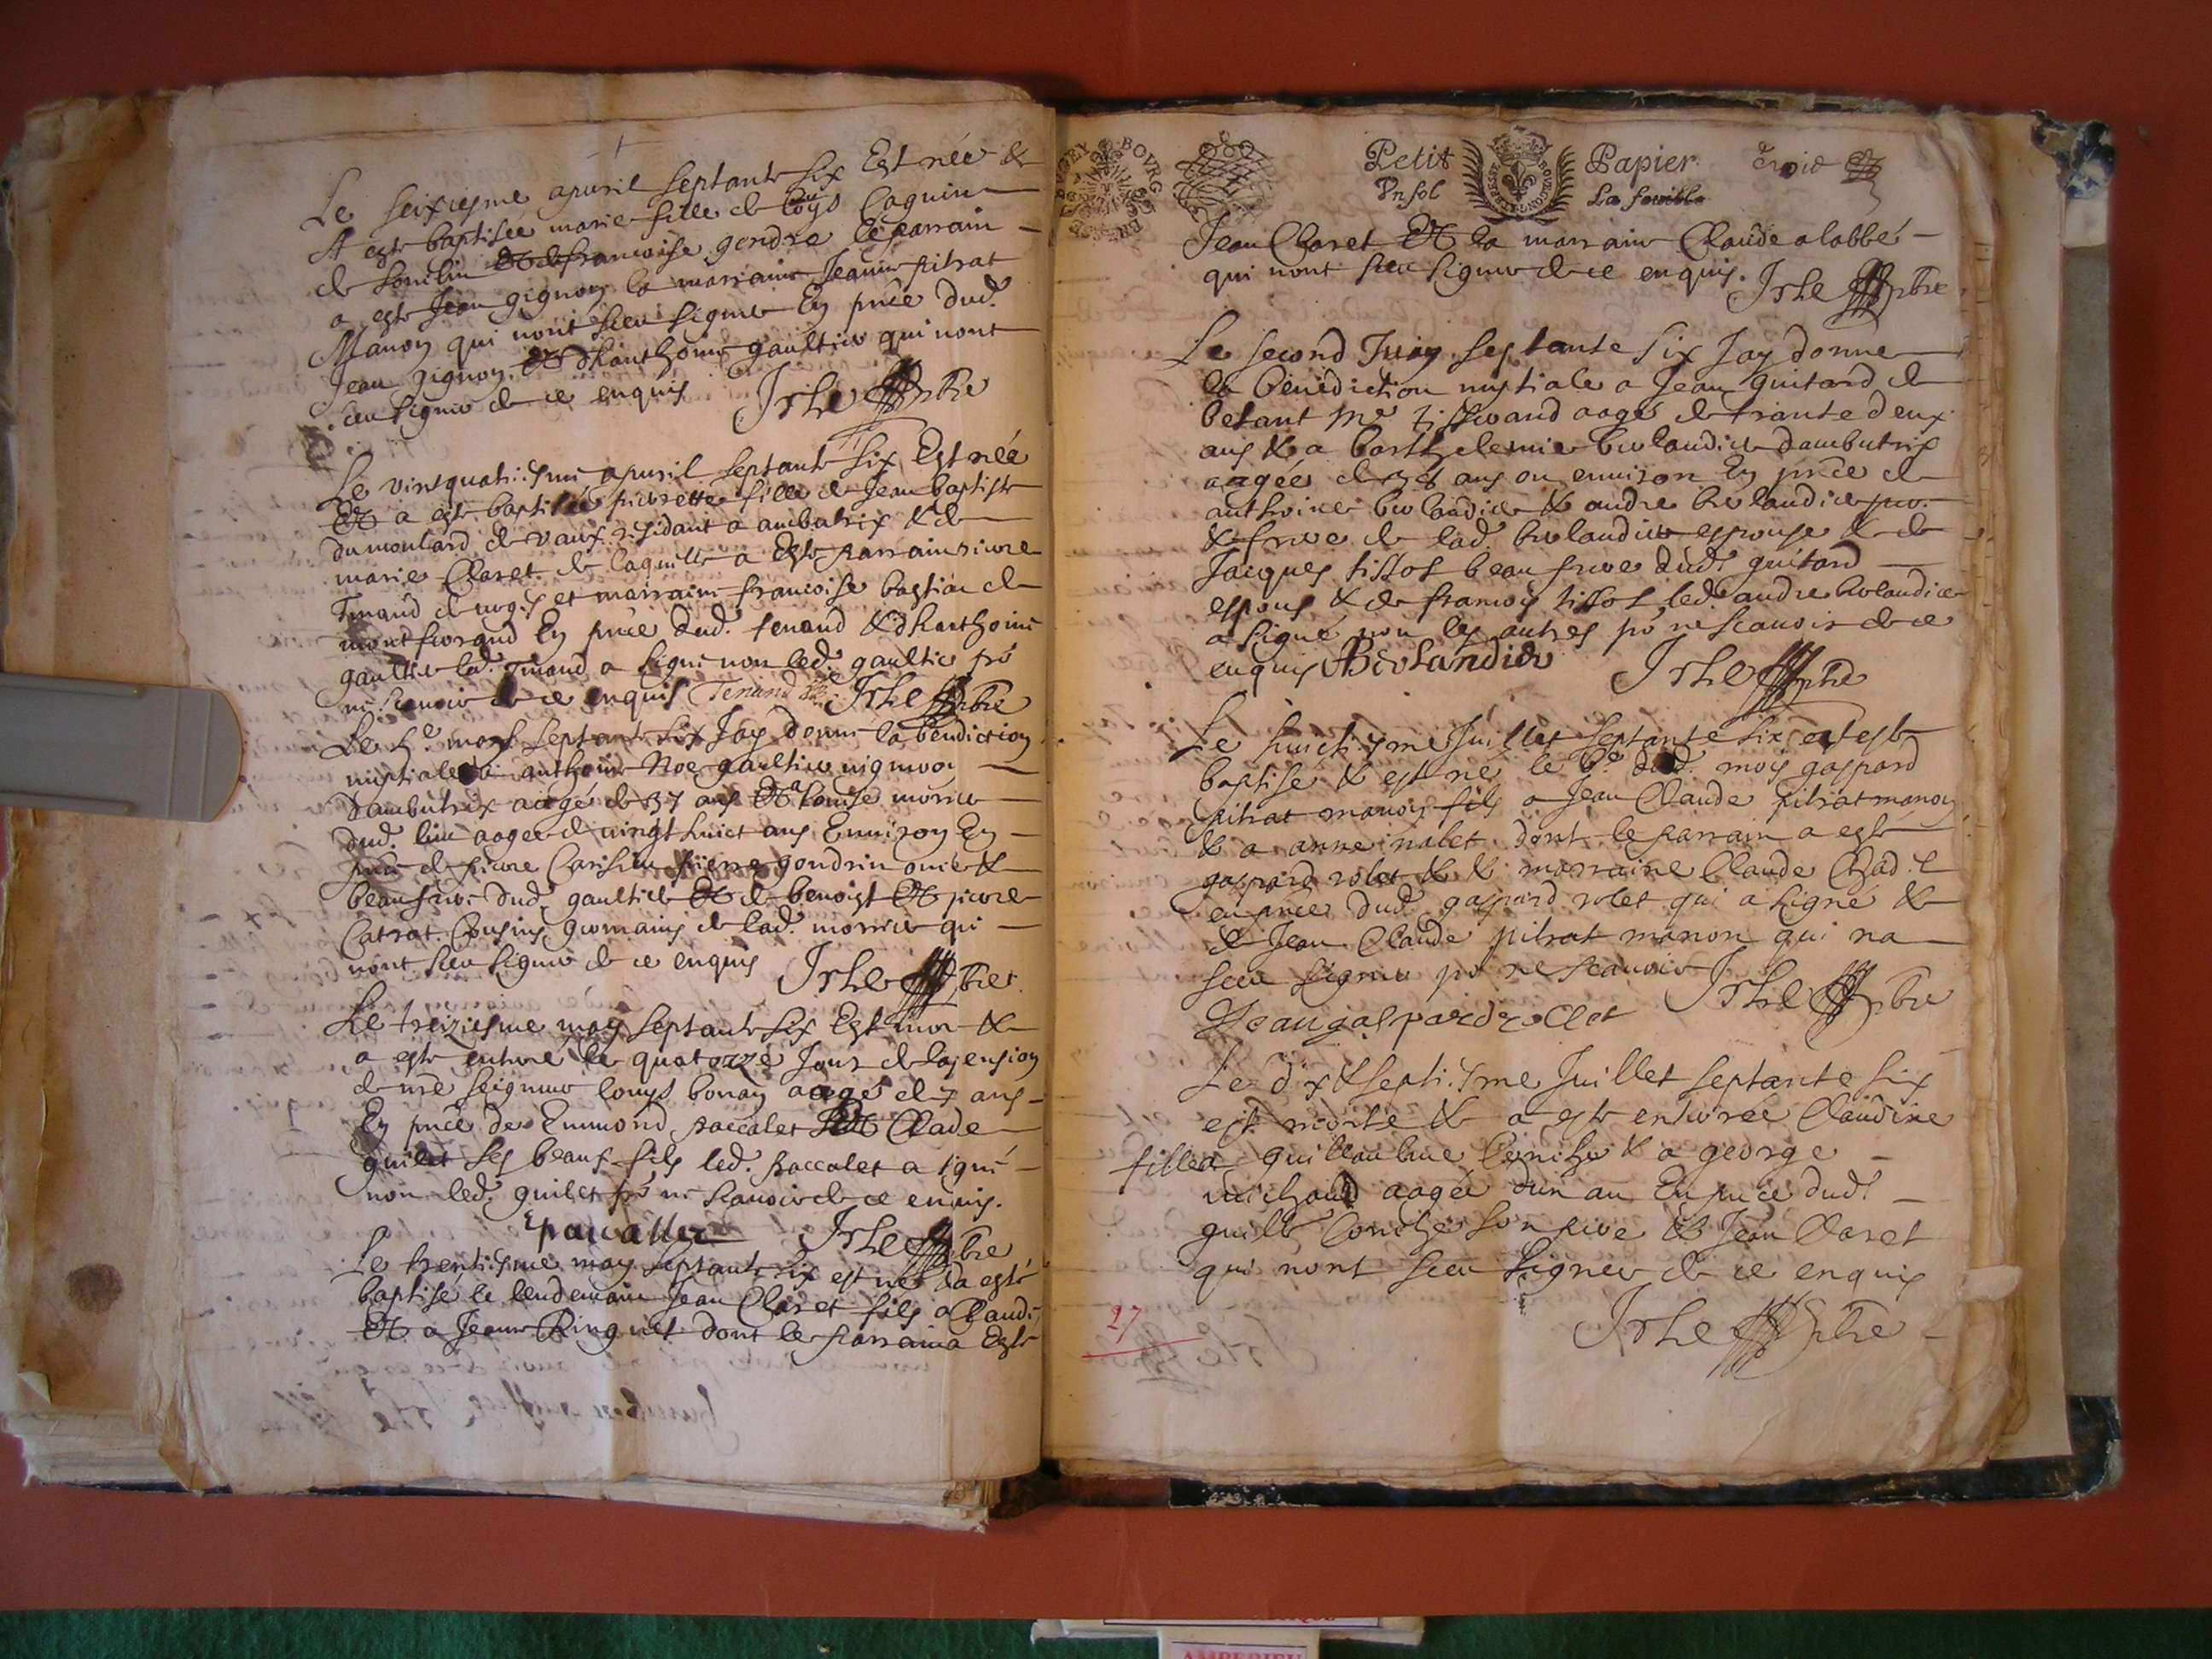 Le seixiesme apuril septante six Est née &
A este baptisée marie fille de loÿs Caguin
de Sonclin & de francoise gondre le parrain
a este Jean gignon la marraine Jeanne pitrat
Manon qui nont sceu signer En pnce dud.
Jean gignon & danthoine gaultier qui nont
sceu signer de ce enquis Isle pbre
Le vintquatriesme apuril septante six Est née
& a este baptisée pierrette fille de Jean baptiste
dumoulard de vaux residant a ambutrix & de
marie Claret de laquelle a Este parrain pierre
Tenand de et marraine francoise bastian de
montferrand En pnce dud. tenand & danthoine
gaultier led. Tenand a signe non led. gaultie po
ne scauoir de ce enquis Tenand Isle pbre
Le 5e may septante six Jay donné la bendiction
nuptiale a anthoine Noe gaultier uigneron
dambutrix aagé de 37 ans & a louise morrier
dud. lieu aagee de uingt huict ans Enuiron En
pnce de pierre pierre gondrin oncle &
beaufrere dud. gaultier & de benoist & pierre
Catrat Cousins germains de lad. morrier qui
nont sceu signer de ce enquis Isle pbre
Le treiziesme may septante six Est mor &
a este enterré le quatorze Jour de lasension
de nre seigneur louys bonay aagé de 7 ans
En pnce de Emmond paccalet & Clade
guilet ses beaux fils led. paccalet a signé
non led. guilet po ne scauoir de ce enquis.
E paccallet Isle pbre
Le trentiesme may septante six est né & a esté
baptisé le lendemain Jean Claret fils a Claude
& a Jeanne Ringuet dont le parrain a Este
BOVRG
Petit Papier Troid
Pnfol La feuille
Jean Claret & la marraine Claude alabbé
qui nont sceu signer de ce enquis. Isle pbre
Le second Juin septante six Jay donne
la benediction nuptiale a Jean guitard de
betant me tisserand aagé de trante deux
ans & a barthelemie berlandier dambutrix
aagée de ans ou enuiron En pnce de
anthoine berlandier & andre berlandier pere
& frere de lad. berlandier espouse & de
Jacques tissot beau frere dud. guitard
espous & de francois tissot led. andre berlandier
a signé non les autres po ne scauoir de ce
enquis ABerlandier Isle pbre
Le huictiesme Juillet septante six est este
baptise & est né le 6e dud. mois gaspard
pitrat manon fils a Jean Claude pitrat manon
& a anne nalet dont le parrain a esté
gaspard rolet & la marraine Claude
en pnce dud. gaspard rolet qui a signé &
de Jean Claude pitrat manon qui na
sceu signer po ne scauoir Isle pbre
Jean gaspard rollet
Le dix & septiesme Juillet septante six
est morte & a este enterrée Claudine
fille a guilleaulme Coniche & a george
michaud aagée dun an En pnce dud.
guille Coniche son pere & Jean Claret
qui nont sceu signer de ce enquis
27 Isle pbre
AMBERIEU